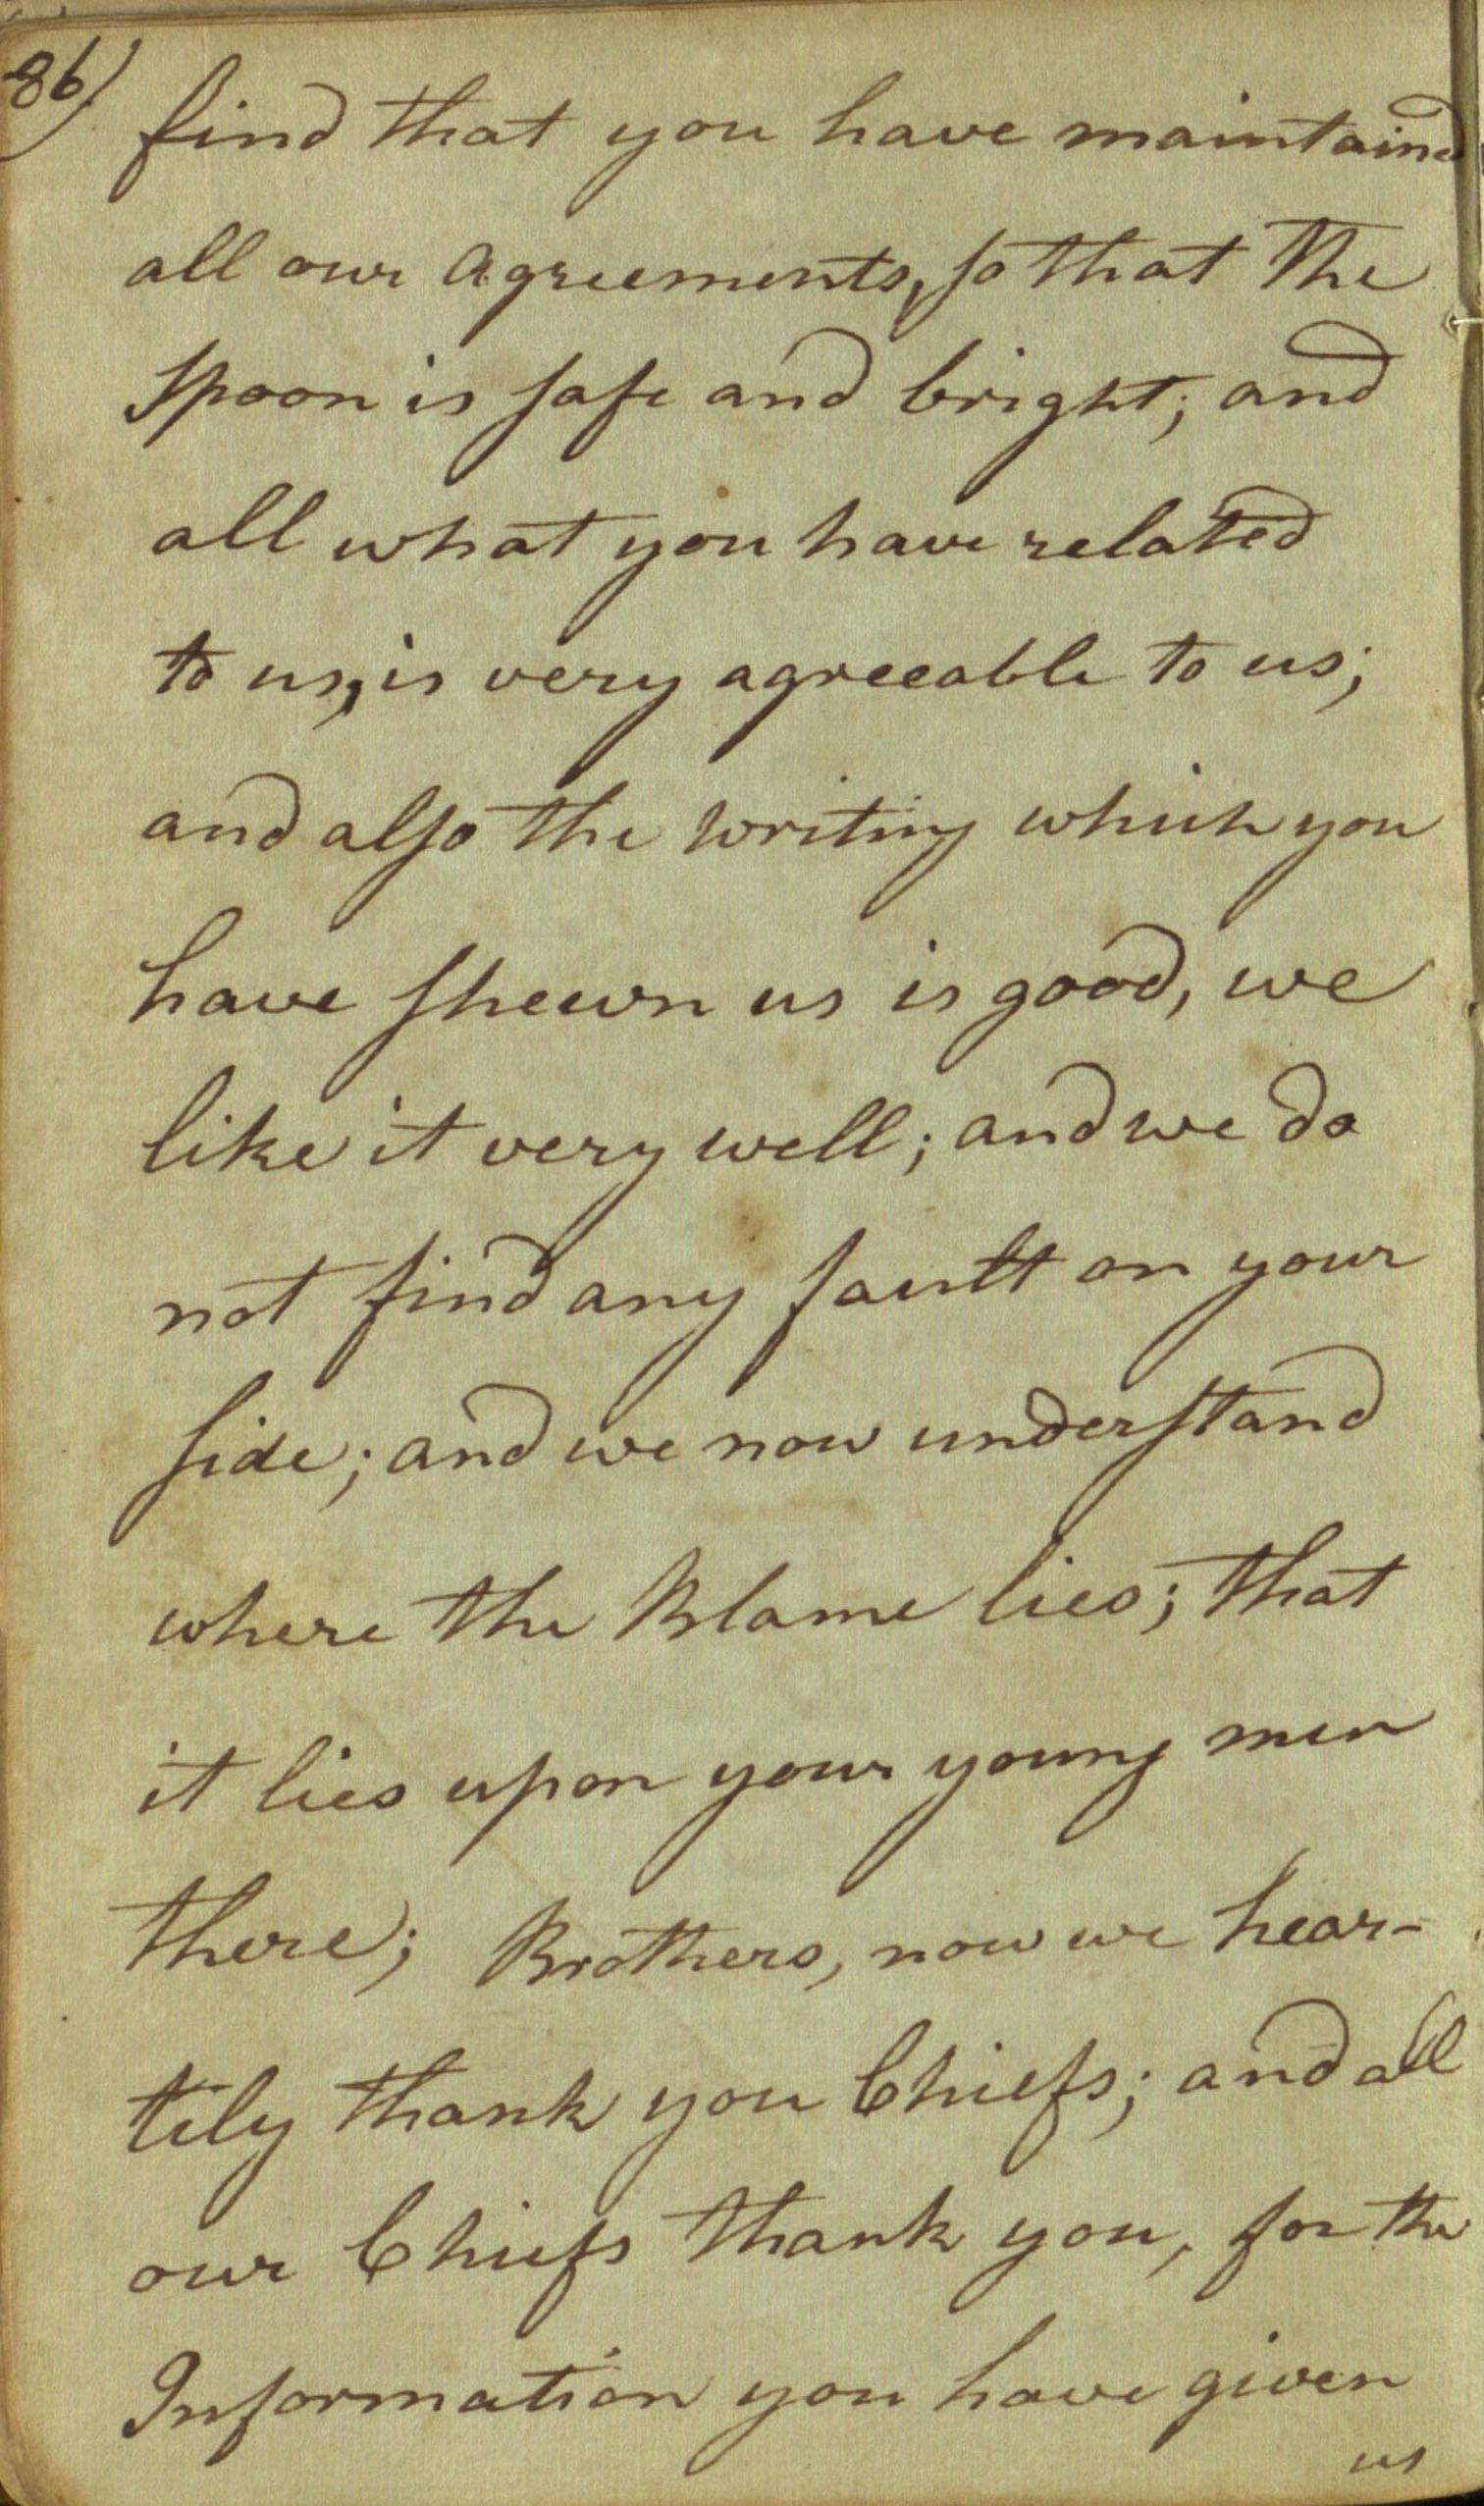 86)
find that you have maintained
all our Agreements, so that the
Spoon is safe and bright; and
all what you have related
to us, is very agreeable to us;
and also the Writing which you
have shewn us is good, we
like it very well; and we do
not find any fault on your
side; and we now understand
where the Blame lies; that
it lies upon your young men
there; Brothers, now we hear-
tily thank you Chiefs; and all
our Chiefs thank you, for the
Information you have given
us